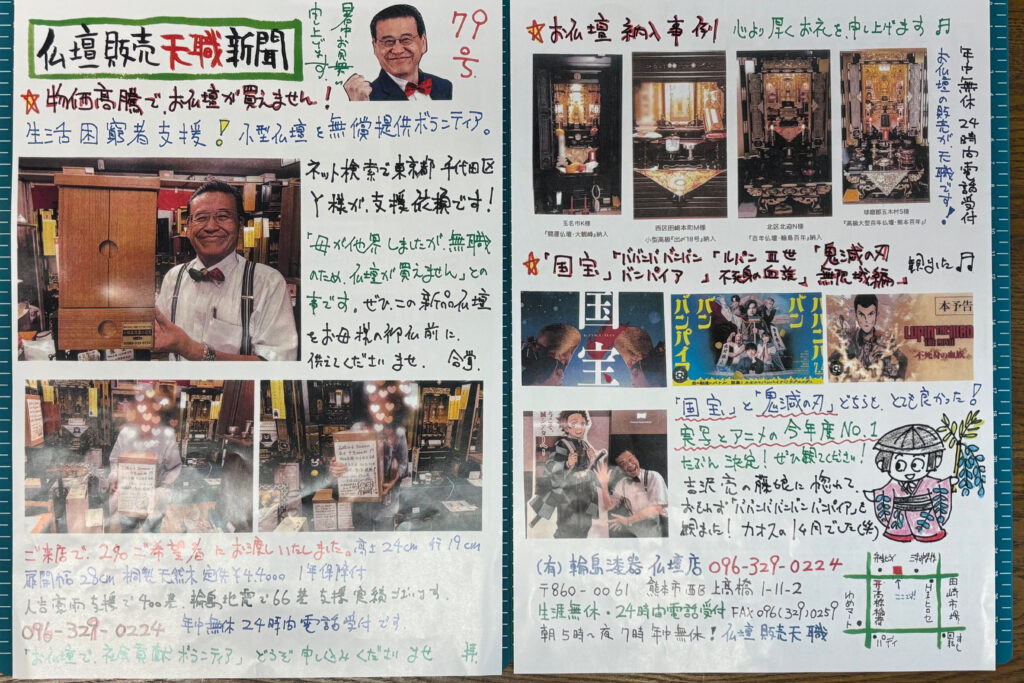 仏壇販売天職新聞
暑中お見舞
申し上げます
79号
☆物価高騰で、お仏壇が買えません!
生活困窮者支援!小型仏壇を無償提供ボランティア。
ネット検索で東京都千代田区
Y様が、支援依頼です!
「母が他界しましたが、無職
のため、仏壇が買えません」との
事です。ぜひ、この新品仏壇
をお母様の御仏前に、
供えてくださいませ 合掌
ご来店で、2名ご希望者にお渡しいたしました。高さ24cm 行19cm
扉開幅28cm 桐製天然木 定価¥44000 1年保障付
人吉豪雨支援で400基、輪島地震で66基支援実績ございます。
096-329-0224 年中無休24時間電話受付です。
「お仏壇で、社会貢献ボランティア」どうぞ申し込みくださいませ 拝
☆お仏壇納入事例 心より厚くお礼を申し上げます♬
年中無休24時間電話受付
お仏壇の販売が天職です!
玉名市K様
『開運仏壇・大鶴峰』納入
西区田崎本町M様
小型高級『出〆18号』納入
北区北迫N様
『百年仏壇・輪島百年』納入
球磨郡五木村S様
『高級大型百年仏壇・熊本百年』
☆「国宝」「ババンババンバンバンパイア」「ルパン三世 不死身の血族」「鬼滅の刃 無限城編」観ました♬
国宝
ババンババンバンバンパイア
本予告
LUPIN THE IIIRD
不死身の血族
「国宝」と「鬼滅の刃」どちらも、とても良かった!
実写とアニメの今年度No.1
たぶん決定!ぜひ観てください!
吉沢亮の藤娘に惚れて
おもわず「ババンババンバンバンパイア」も
観ました!カオスの1ヶ月でした(笑)
(有)輪島漆器仏壇店 096-329-0224
〒860-0061 熊本市西区上高橋1-11-2
生涯無休・24時間電話受付 FAX096(329)0259
朝5時〜夜7時年中無休!仏壇販売天職
ここです!
田崎市場
ゆめマート